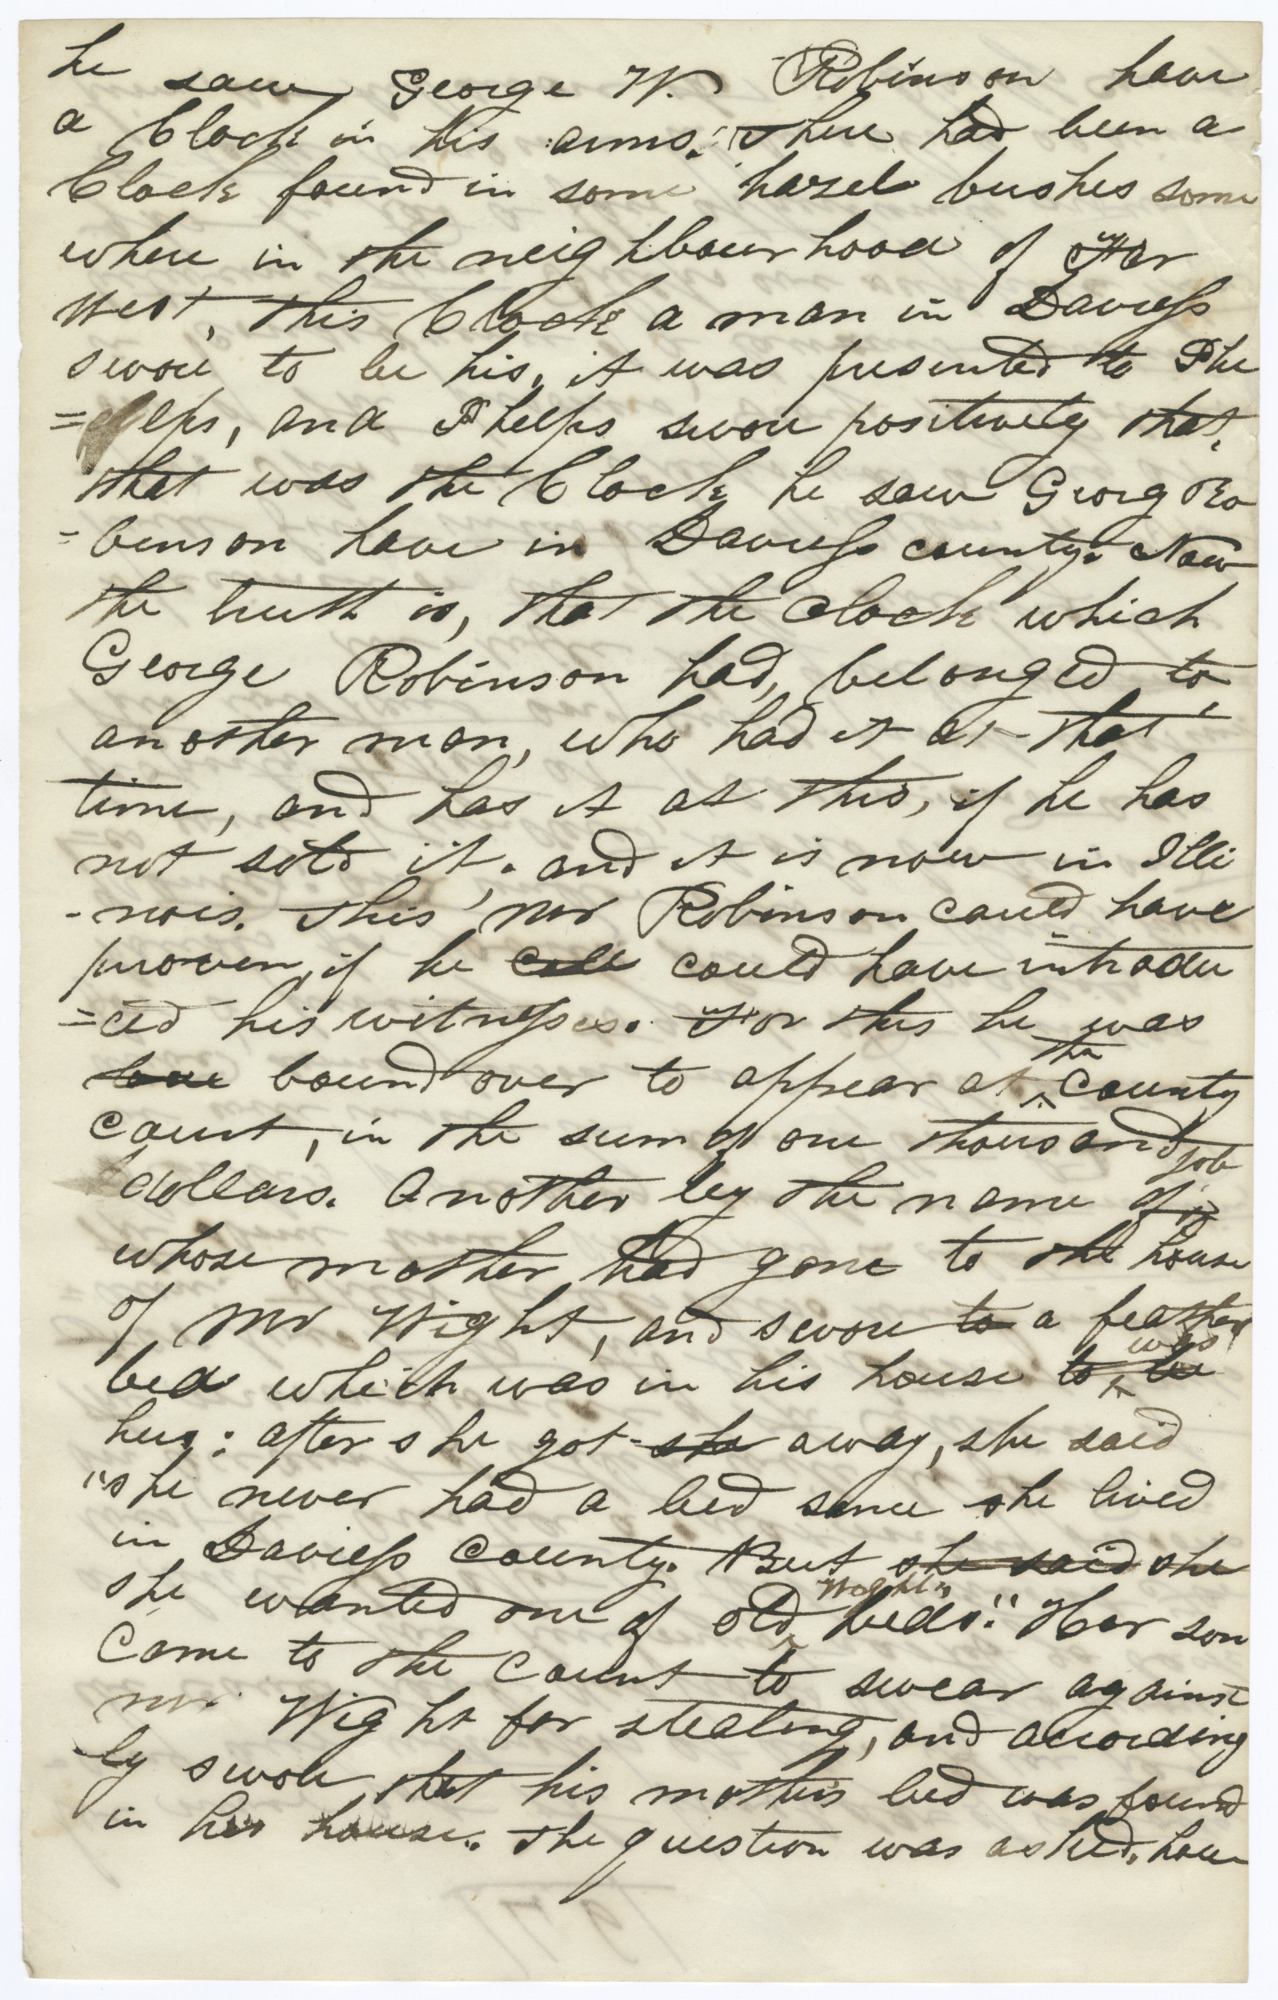 he saw George W. Robinson have
a Clock in his arms. There had been a
Clock found in some hazel bushes some
where in the neighbourhood of Far
West, this Clock a man in Daviess
swore to be his, it was presented to Phe
=elps, and Phelps swore positively that,
that was the Clock he saw Georg Ro
=benson have in Daviess county. Now
the truth is, that the clock which
George Robinson had, belonged to
another man, who had it at that
time, and has it at this, if he has
not sold it. and it is now in Illi
-nois. This Mr Robinson could have
proven, if he could have introdu
=ced his witnesses. For this he was
bound over to appear at the County
court, in the sum of one thousand
dollars. Another by the name of Job
whose mother had gone to the house
of Mr Wight, and swore to a feather
bed which was in his house was
hers; after she got away, she said
"she never had a bed since she lived
in Daviess County. But she said she
she wanted one of old Wight's beds." Her son
came to the court to swear against
Mr. Wight for stealing, and according
-ly swore that his mothers bed was found
in her house. The question was asked, how